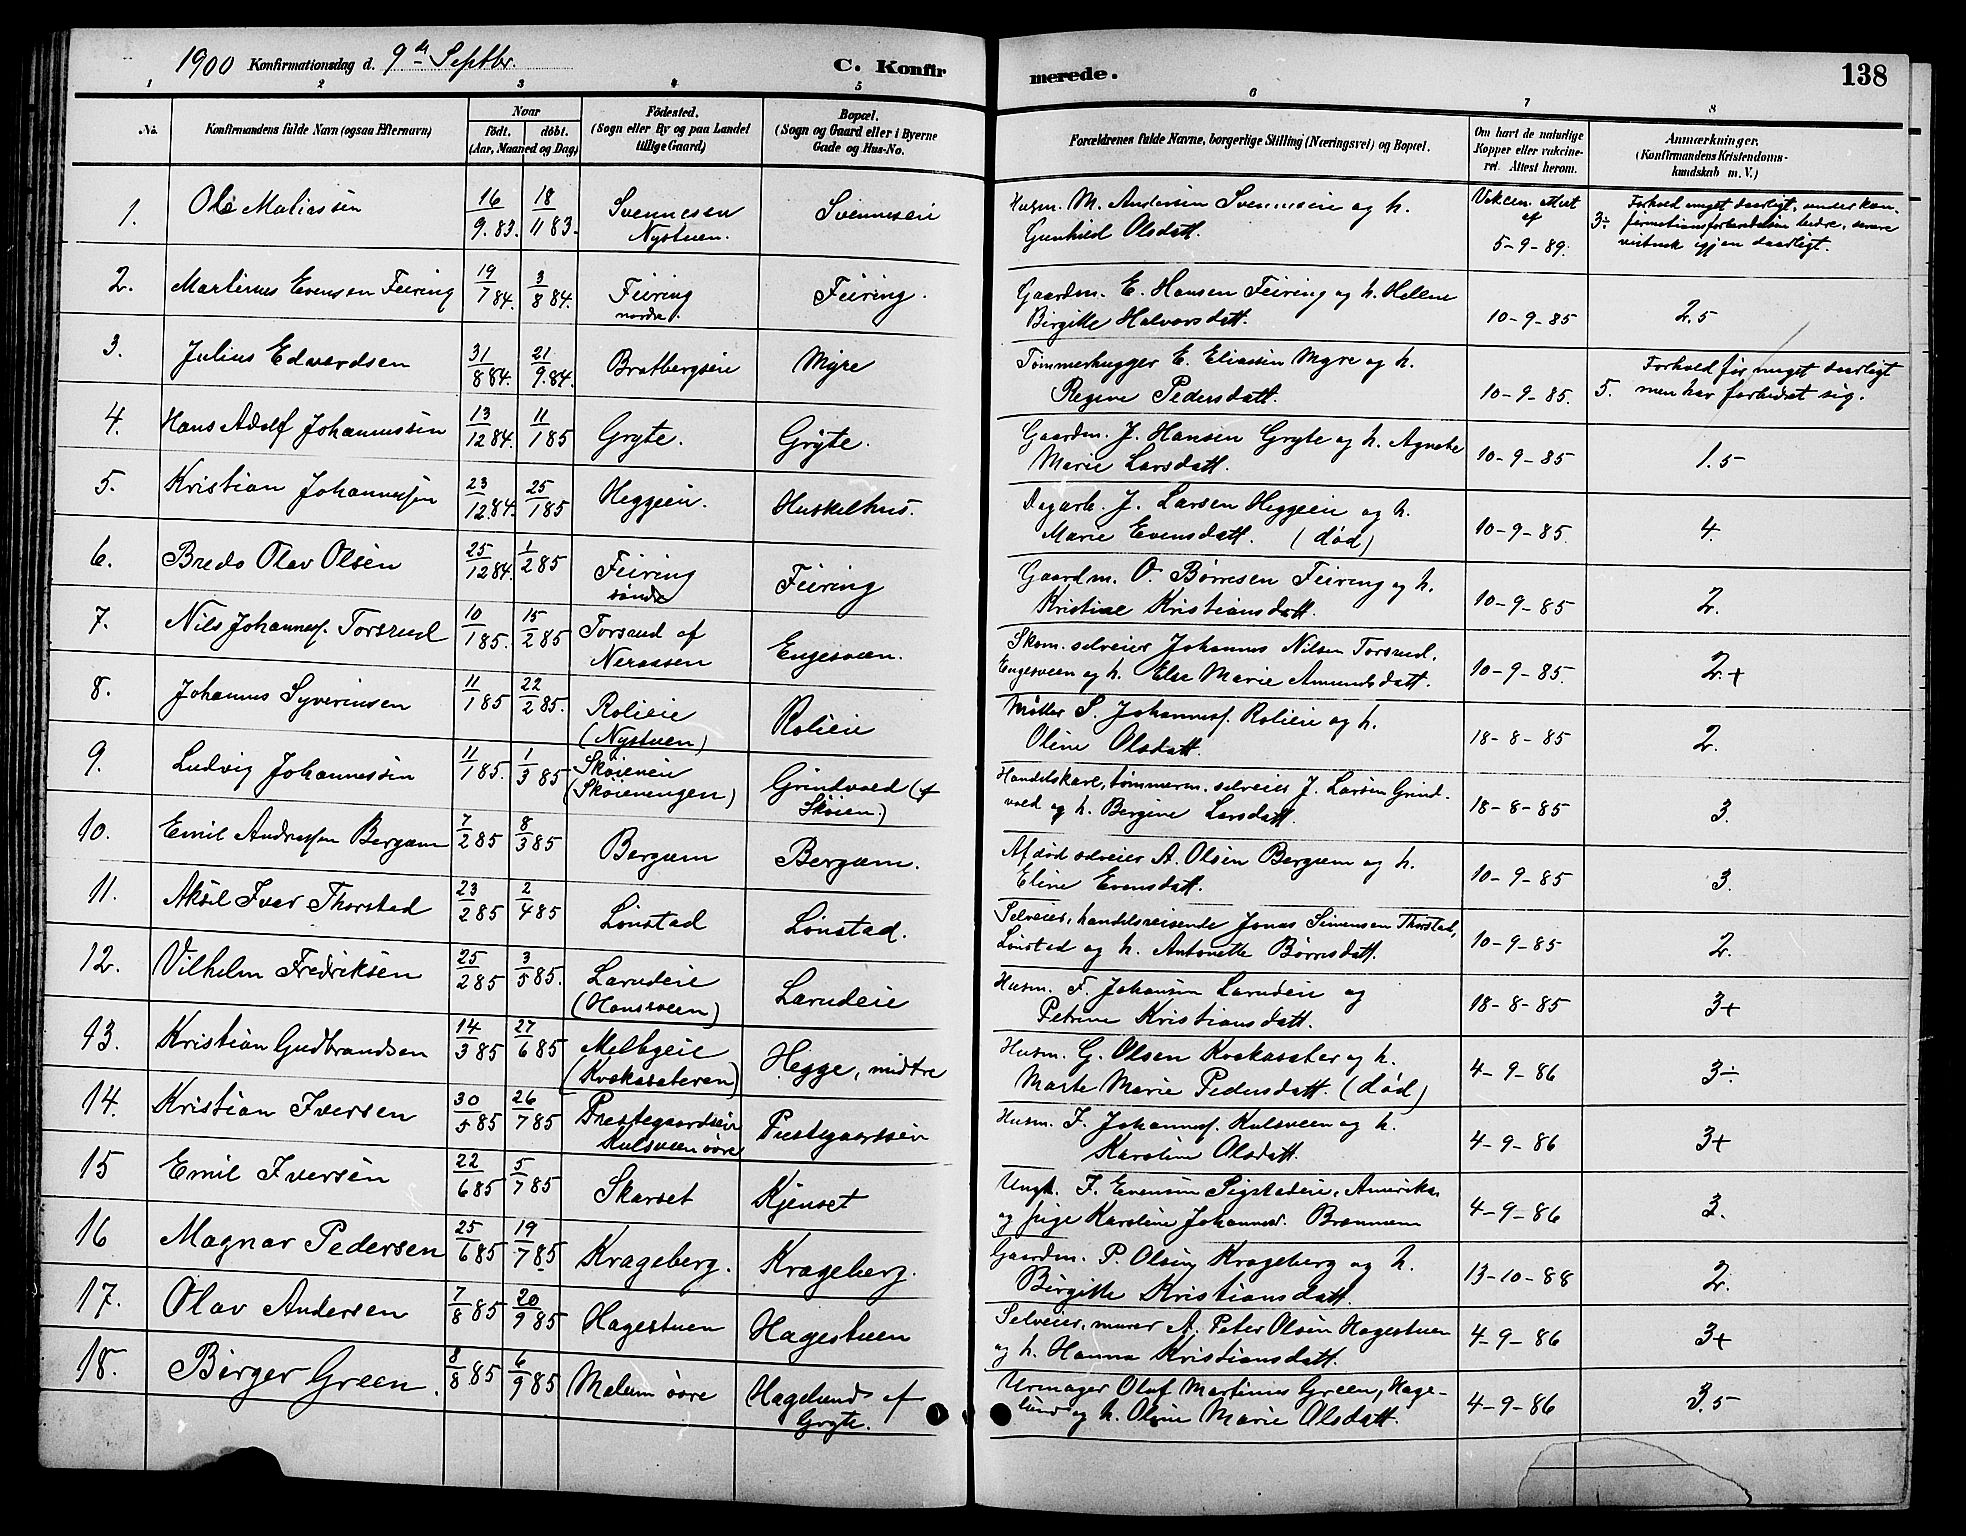 1900 Konfirmationsdag d. 9de Septbr. C. Konfir merede. 138
1 2 3 4 5 6 7 8
No. Konfirmandens fulde Navn (ogsaa Efternavn) Naar födt. döbt. (Aar, Maaned og Dag) Födested. (Sogn eller By og paa Landet tillige Gaard) Bopæl. (Sogn og Gaard eller i Byerne Gade og Hus-No. Forældrenes fulde Navne, borgerlige Stilling (Næringsvei) og Bopæl. Om havt de naturlige Kopper eller vakcineret. Attest herom. Anmærkninger. (Konfirmandens Kristendomskundskab m. V.)
1. Ole Maliassen 16/9.83. 18/11 83. Svennesen Nystuen. Svenneseie Husm. M. Andersen Svenneseie og h. Gunhild Olsdatt. Vakcin. attest af 5-9-89. 3÷ Forhold meget daarligt, under konfirmationsforberedelsen bedre, senere vistnok igjen daarligt.
2. Martinus Evensen Feiring 19/7 84. 3/8 84. Feiring nordre. Feiring. Gaardm. E. Hansen Feiring og h. Helene Birgitte Halvorsdatt. 10-9-85 2.5
3. Julius Edvardsen 31/8 84. 21/9.84. Bratbergseie Myre Tømmerhugger E. Eliassen Myre og h. Regine Pedersdatt. 10-9-85. 5. Forhold før meget daarligt men har forbedret sig.
4. Hans Adolf Johannessen 13/12 84. 11/1 85 Gryte. Gryte. Gaardm. J. Hansen Gryte og h. Agnethe Marie Larsdatt. 10-9-85 1.5
5. Kristian Johannessen 23/12.84. 25/1 85 Heggeeie. Huskelhus. Dagarb. J. Larsen Heggeeie og h. Marie Evensdatt. (død) 10-9-85. 4.
6. Bredo Olav Olsen 25/12 84. 1/2 85 Feiring søndre Feiring Gaardm. O. Børresen Feiring og h. Kristine Kristiansdatt. 10-9-85 2.
7. Nils Johannesf. Torsrud 10/1 85. 15/2 85 Torsrud af Neraasen Engesveen. Skom. selveier Johannes Nilsen Torsrud, Engesveen og h. Else Marie Amundsdatt. 10-9-85. 2.+
8. Johannes Syverinsen 11/1 85 22/2 85. Rolieie (Nystuen) Rolieie Møller S. Johannesf. Rolieie og h. Oline Olsdatt. 18-8-85 2.
9. Ludvig Johannessen 11/1 85. 1/3 85 Skøieneie (Skøieningen) Grindvold (af Skøien.) Handelskare, tømmerm. selveier J. Larsen Grindvold og h. Bergine Larsdatt. 18-8-85 3.
10. Emil Andreassen Bergum 7/2 85 8/3 85 Bergum Bergum. Afdød selveier A. Olsen Bergum og h. Eline Evensdatt. 10-9-85 3.
11. Aksel Iver Thorstad 23/2 85 2/4 85 Lønstad Lønstad. Selveier, handelsreisende Jonas Simensen Thorstad, Lønstad og h. Antonette Børresdatt. 10-9-85 2.
12. Vilhelm Fredriksen 25/2 85 3/5 85. Larudeie (Hansveen) Larudeie Husm. F. Johansen Larudeie og Petrine Kristiansdatt. 18-8-85 3+
13. Kristian Gudbrandsen 14/3 85 27/6 85 Melbyeie (Krokasæteren) Hegge, midtre Husm. G. Olsen Krokasæter og h. Marte Marie Pedersdatt. (død) 4-9-86 3÷
14. Kristian Iversen 30/5 85 26/7 85 Prestegaardseie Kulsveen øvre Prestegaardseie Husm. I. Johannesf. Kulsveen og h. Karoline Olsdatt. 4-9-86 3+
15 Emil Iversen 22/6 85 5/7 85 Skarset Kjenset Ungk. I. Evensen Sigstadeie, Amerika og pige Karoline Johannesd. 4-9-86 3.
16 Magnar Pedersen 25/6 85 19/7 85 Krageberg. Krageberg. Gaardm. P. Olsen Krageberg og h. Birgitte Kristiansdatt. 13-10-88 2.
17. Olav Andersen 7/8 85 20/9 85 Hagestuen Hagestuen Selveier, murer A. Peter Olsen Hagestuen og h. Hanna Kristiansdatt. 4-9-86 3+
18. Birger Green. 8/8 85 6/9 85 Melum øvre Hagelund af Gryte. Urmager Olaf Martinius Green, Hagelund og h. Oline Marie Olsdatt. 4-9-86 3.5